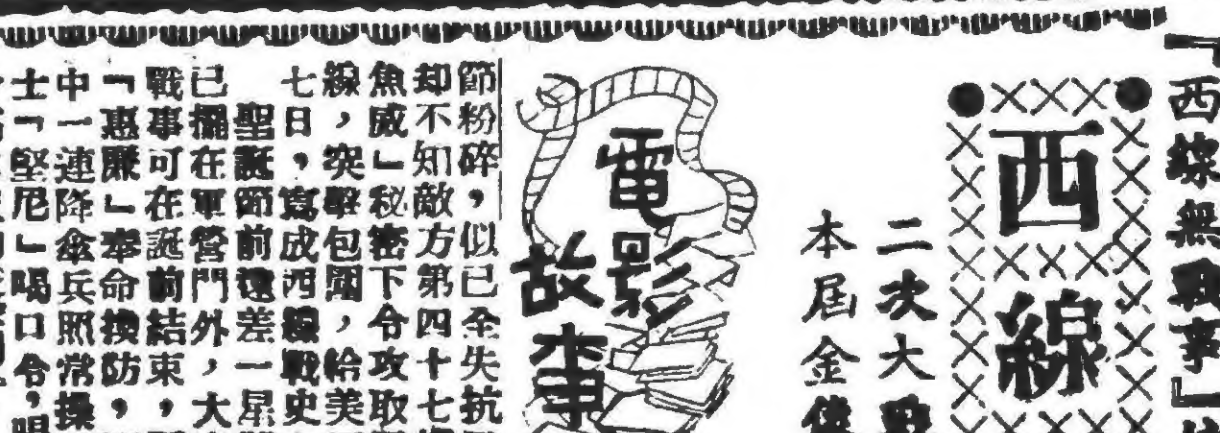 『西線無戰事』
西線
二次大戰
本屆金像
電影故事
節粉碎，似已全失抗
却不知敵方第四十七
魚威」秘密下令攻取
線，突擊包圍，給美
七日，寫成西線戰史
聖誕節前還差一星
已擺在軍營門外，大
戰事可在誕前結束，
「惠廉」奉命換防，
中一連降傘兵照常操
士「堅尼」喝口令，唱